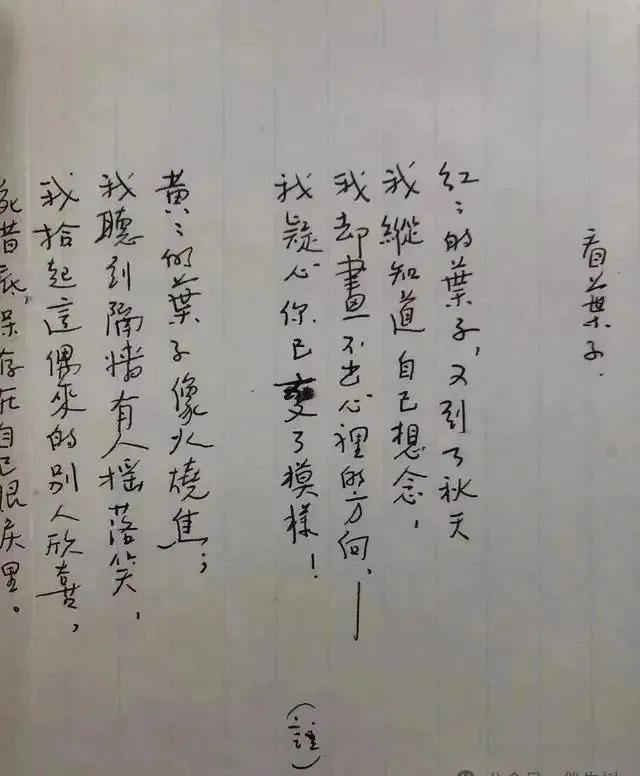 看葉子.
紅〻的葉子，又到了秋天
我縱知道自己想念，
我却畫不出心裡的方向，——
我疑心你已變了模樣！
（註）
黃〻的葉子像火燒焦；
我聽到隔墻有人搖落笑，
我拾起這偶來的別人欣喜，
惜藏，保存在自己眼底里。
公众号